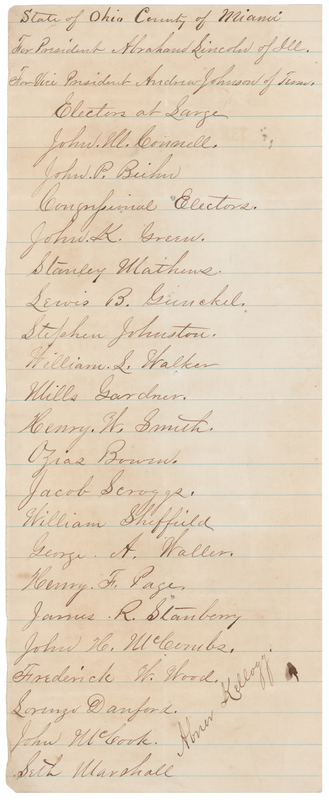 State of Ohio County of Miami
For President Abraham Lincoln of Ill.
For Vice President Andrew Johnson of Tenn.
Electors at Large
John. M. Connell.
John. P. Biehn
Congressional Electors.
John. K. Green.
Stanley Mathews.
Lewis B. Gunckel.
Stephen Johnston.
William. L. Walker
Mills Gardner.
Henry. W. Smith.
Ozias Bowen.
Jacob Scroggs.
William Sheffield
George. A. Waller.
Henry. F. Page.
James. R. Stanberry
John H. McCombs.
Frederick W. Wood.
Lorenzo Danford.
John McCook.
Seth Marshall
Abner Kellogg